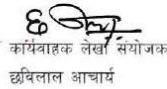 कार्यवाहक लेखा संयोजक
छविलाल आचार्य